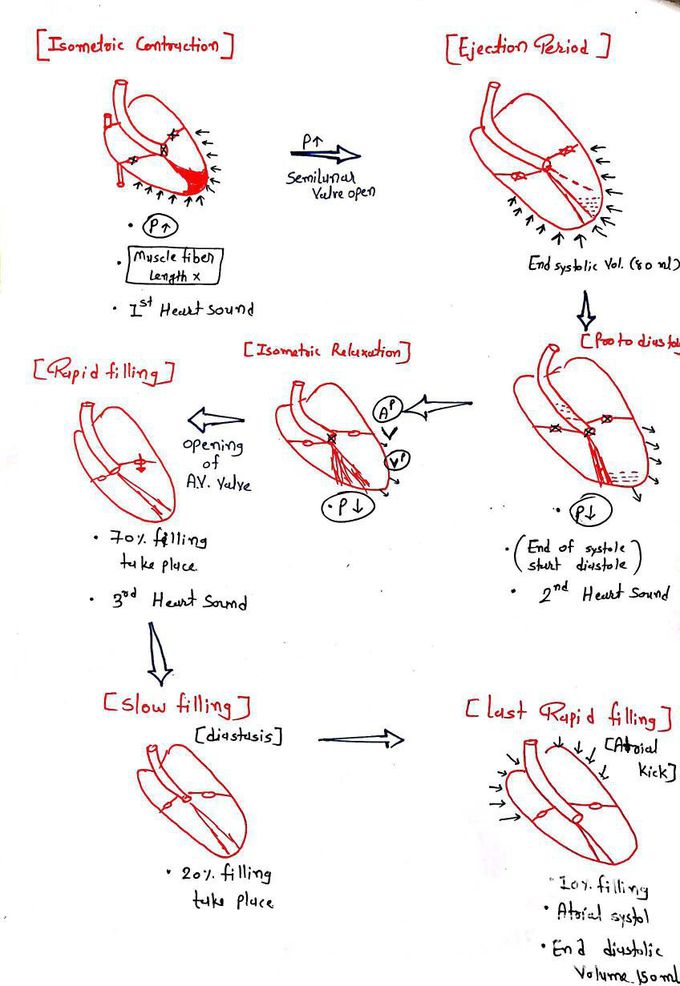 [Isometric Contraction]
P↑
Muscle fiber
Length x
1st Heart sound
P↑
Semilunar
Valve open
[Ejection Period]
End systolic Vol. (80 ml)
[Proto diastol
P↓
(End of systole
start diastole)
2nd Heart sound
[Isometric Relaxation]
AP
V
VP
P↓
opening
of
A.V. Valve
[Rapid filling]
70% filling
take place
3rd Heart Sound
[Slow filling]
[diastasis]
20% filling
take place
[last Rapid filling]
[Atrial
Kick]
10% filling
Atrial systol
End diastolic
Volume 150ml